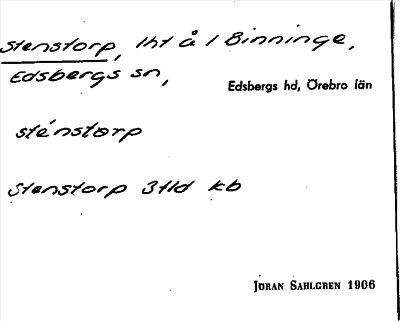 Stenstorp, lht å / Binninge,
Edsbergs sn,
Edsbergs hd, Örebro län
sténstorp
Stenstorp 3tld kb
JÖRAN SAHLGREN 1906